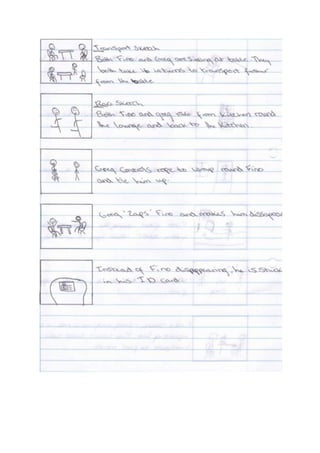 Transport Sketch
Both Fino and Greg are sitting at table. They
both take it in turns to transport further
from the table.
Race Sketch
Both Fino and greg run from kitchen round
the lounge and back to the kitchen.
Greg Controls rope to wrap round Fino
and tie him up.
Greg 'Zaps' Fino and makes him disappear
Instead of Fino disappearing, he is stuck
in his ID card.